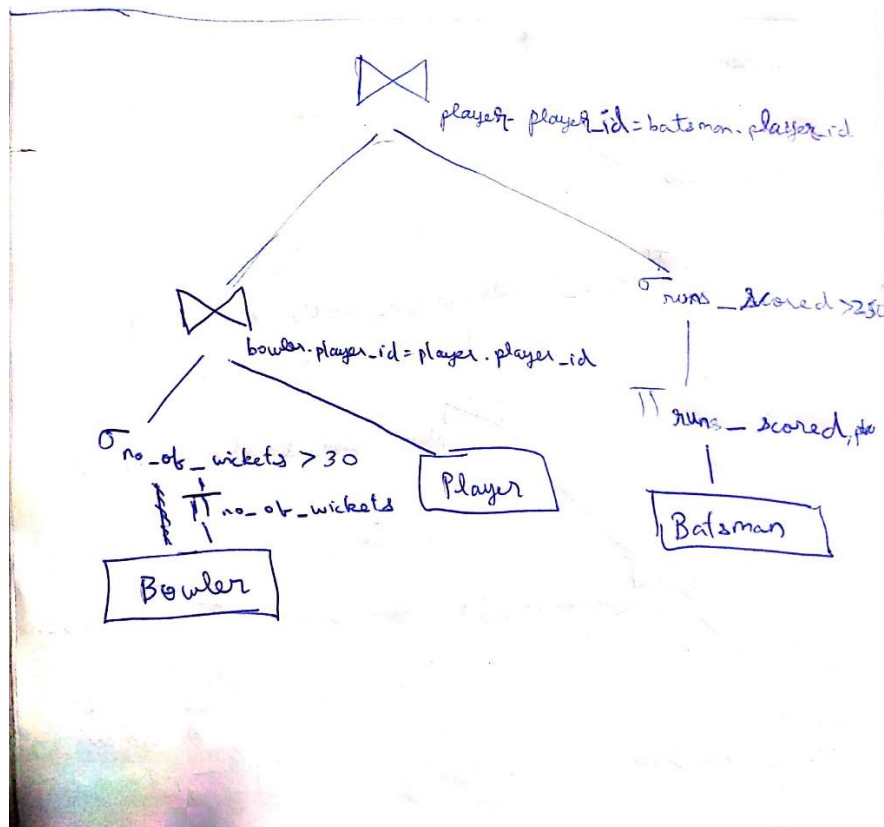 ⋈
player. player_id = batsman. player_id
⋈
bowler. player_id = player. player_id
σ runs _ scored > 250
σ no_of_wickets > 30
π runs _ scored,
π no_of_wickets
Player
Batsman
Bowler